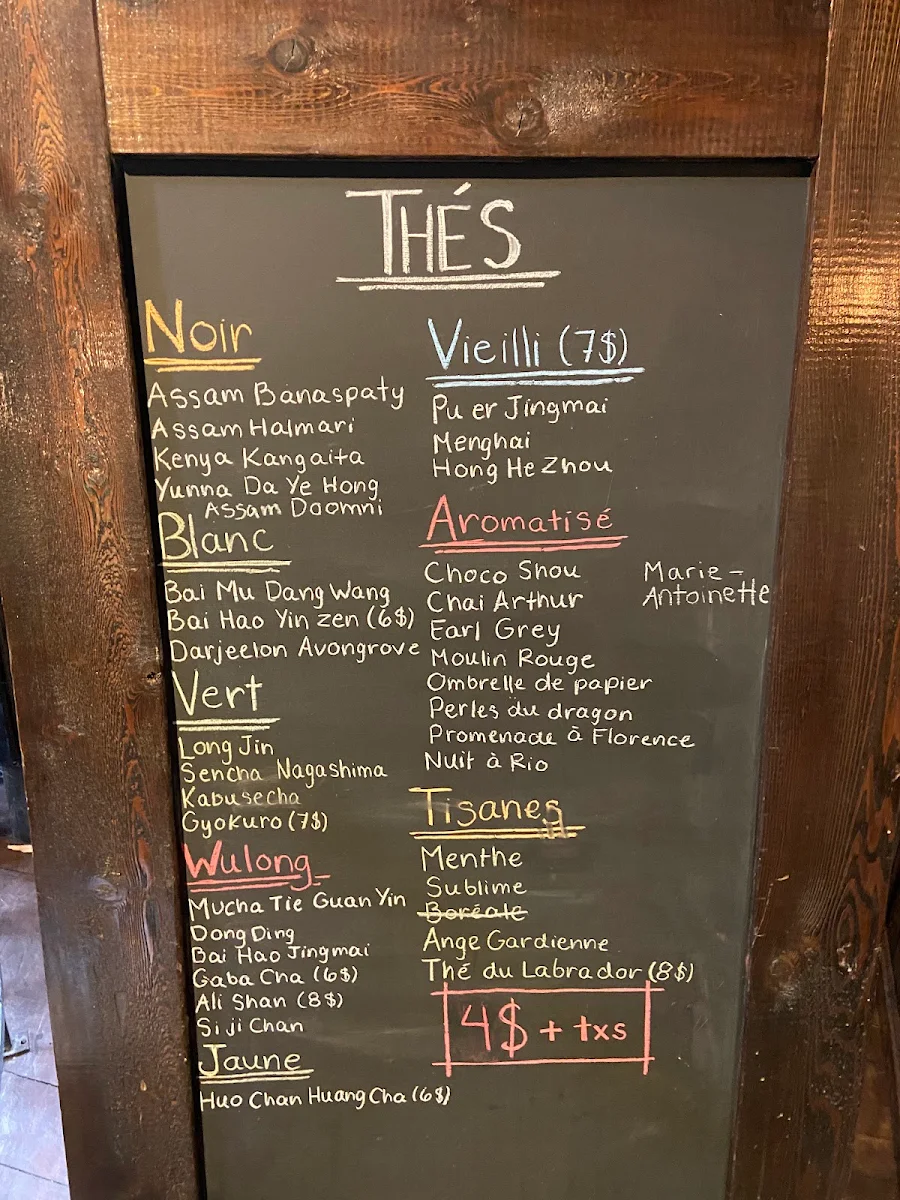 THÉS
Noir
Assam Banaspaty
Assam Halmari
Kenya Kangaita
Yunna Da Ye Hong
Assam Doomni
Blanc
Bai Mu Dang Wang
Bai Hao Yin zen (6$)
Darjeelon Avongrove
Vert
Long Jin
Sencha Nagashima
Kabusecha
Gyokuro (7$)
Wulong
Mucha Tie Guan Yin
Dong Ding
Bai Hao Jingmai
Gaba Cha (6$)
Ali Shan (8$)
Si ji Chan
Jaune
Huo Chan Huang Cha (6$)
Vieilli (7$)
Pu er Jingmai
Menghai
Hong He Zhou
Aromatisé
Choco Shou
Chai Arthur
Earl Grey
Moulin Rouge
Ombrelle de papier
Perles du dragon
Promenade à Florence
Nuit à Rio
Marie-
Antoinette
Tisanes
Menthe
Sublime
Boréale
Ange Gardienne
Thé du Labrador (8$)
4$ + txs